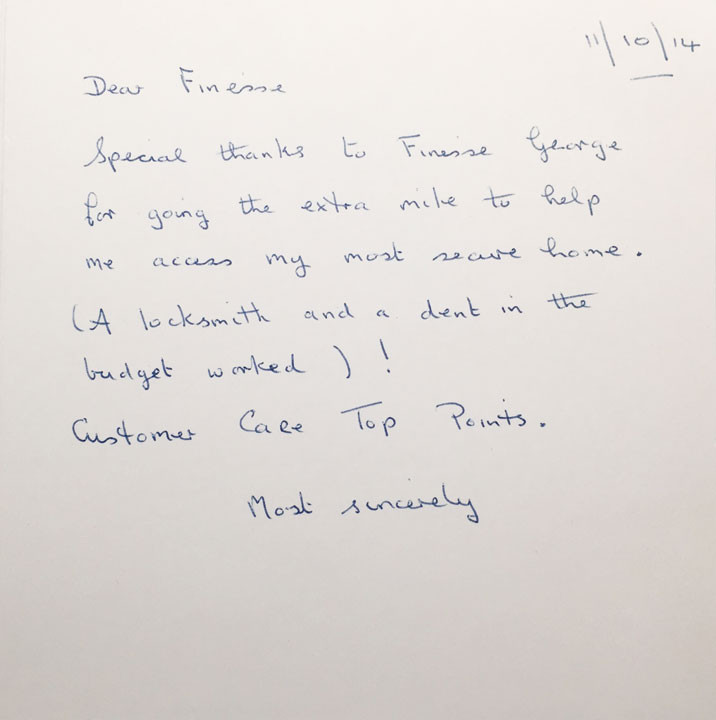 11/10/14
Dear Finesse
Special thanks to Finesse George
for going the extra mile to help
me access my most secure home.
(A locksmith and a dent in the
budget worked)!
Customer Care Top Points.
Most sincerely